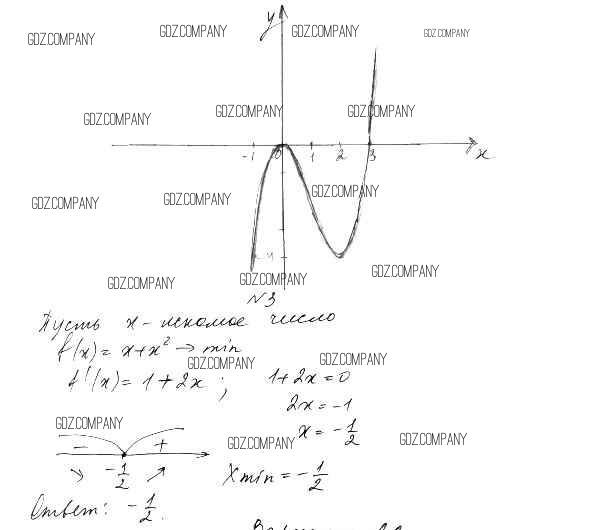 y
GDZ.COMPANY GDZ.COMPANY GDZ.COMPANY GDZ.COMPANY
GDZ.COMPANY GDZ.COMPANY GDZ.COMPANY
-1 0 1 2 3 x
GDZ.COMPANY GDZ.COMPANY GDZ.COMPANY
-4
GDZ.COMPANY GDZ.COMPANY GDZ.COMPANY
N3
Пусть x - искомое число
f(x) = x + x² → min
GDZ.COMPANY GDZ.COMPANY
f'(x) = 1 + 2x ; 1 + 2x = 0
2x = -1
GDZ.COMPANY x = -1/2
GDZ.COMPANY GDZ.COMPANY
- +
↘ -1/2 ↗ Xmin = -1/2
Ответ: -1/2.